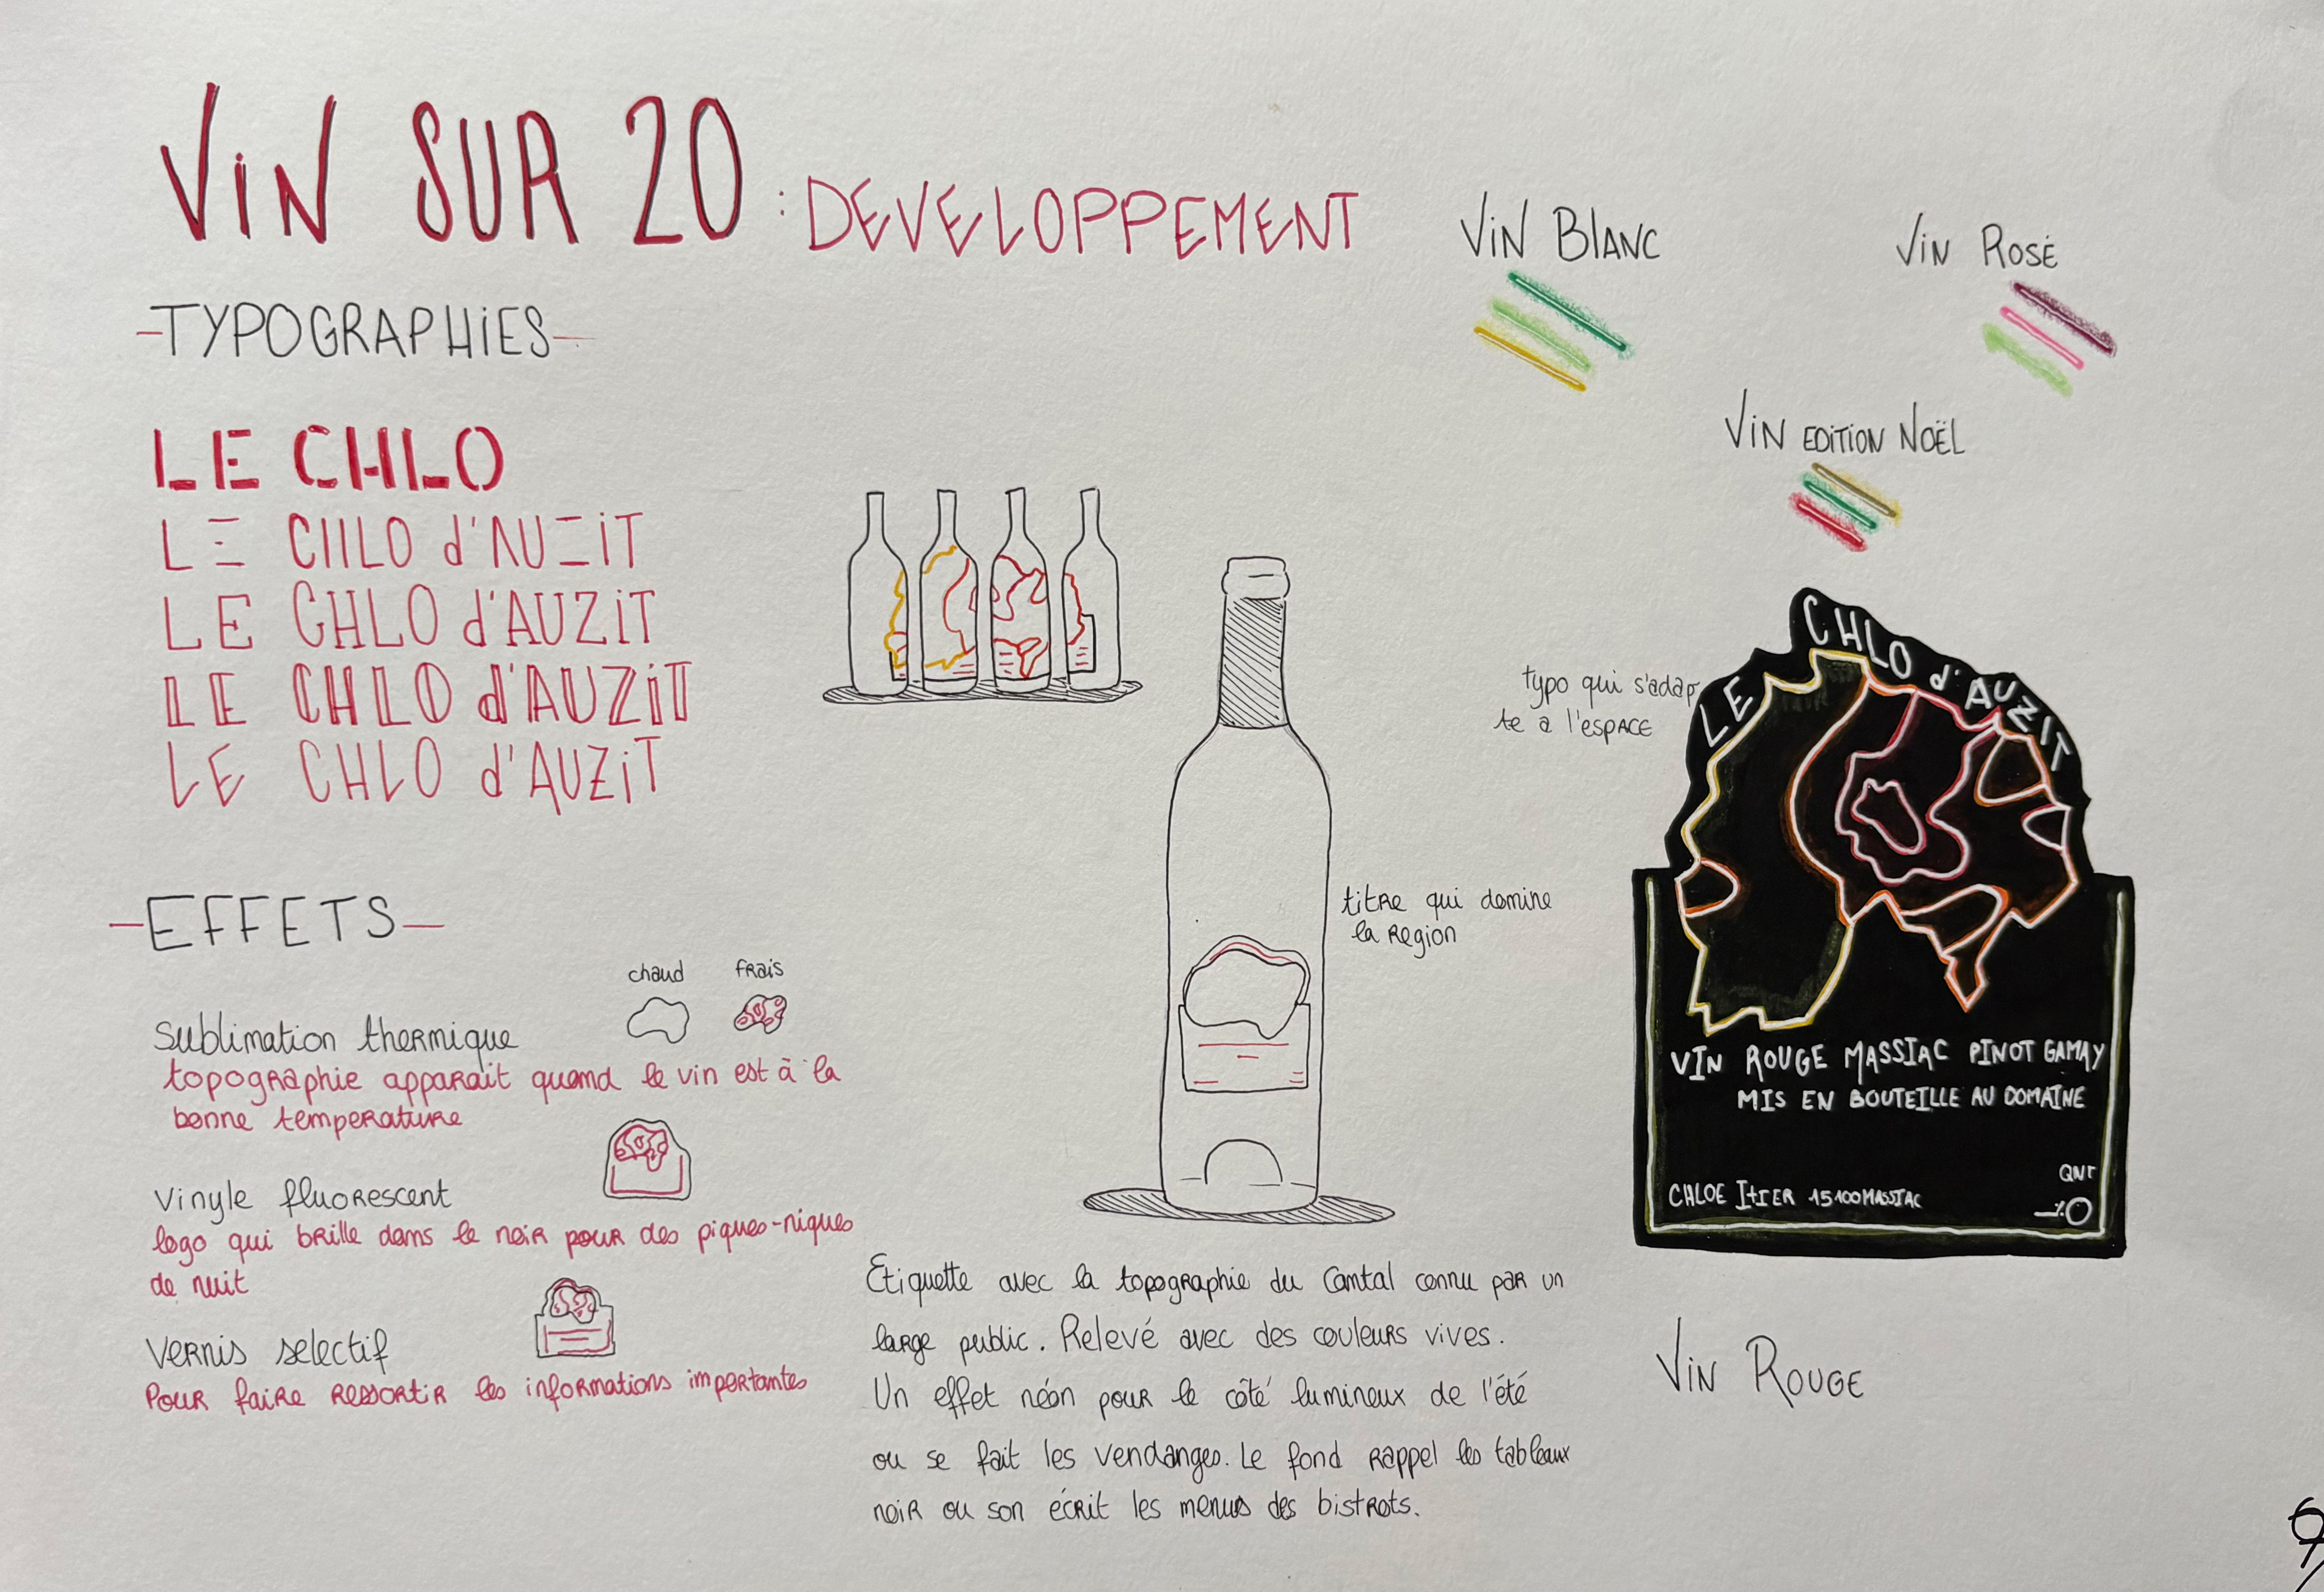 VIN SUR 20 : DEVELOPPEMENT
-TYPOGRAPHIES-
LE CHLO
LE CHLO d'AUZIT
LE CHLO d'AUZIT
LE CHLO d'AUZIT
LE CHLO d'AUZIT
-EFFETS-
chaud
frais
Sublimation thermique
topographie apparait quand le vin est à la
bonne temperature
Vinyle fluorescent
logo qui brille dans le noir pour des piques-niques
de nuit
Vernis selectif
Pour faire ressortir les informations importantes
titre qui domine
la region
Etiquette avec la topographie du Cantal connu par un
large public. Relevé avec des couleurs vives.
Un effet néon pour le côté lumineux de l'été
ou se fait les vendanges. Le fond rappel les tableaux
noir ou son écrit les menus des bistrots.
VIN BLANC
VIN ROSÉ
VIN EDITION NOËL
typo qui s'adap
te a l'espace
LE CHLO d'AUZIT
VIN ROUGE MASSIAC PINOT GAMAY
MIS EN BOUTEILLE AU DOMAINE
QNT
CHLOE ITIER 15100 MASSIAC
VIN ROUGE